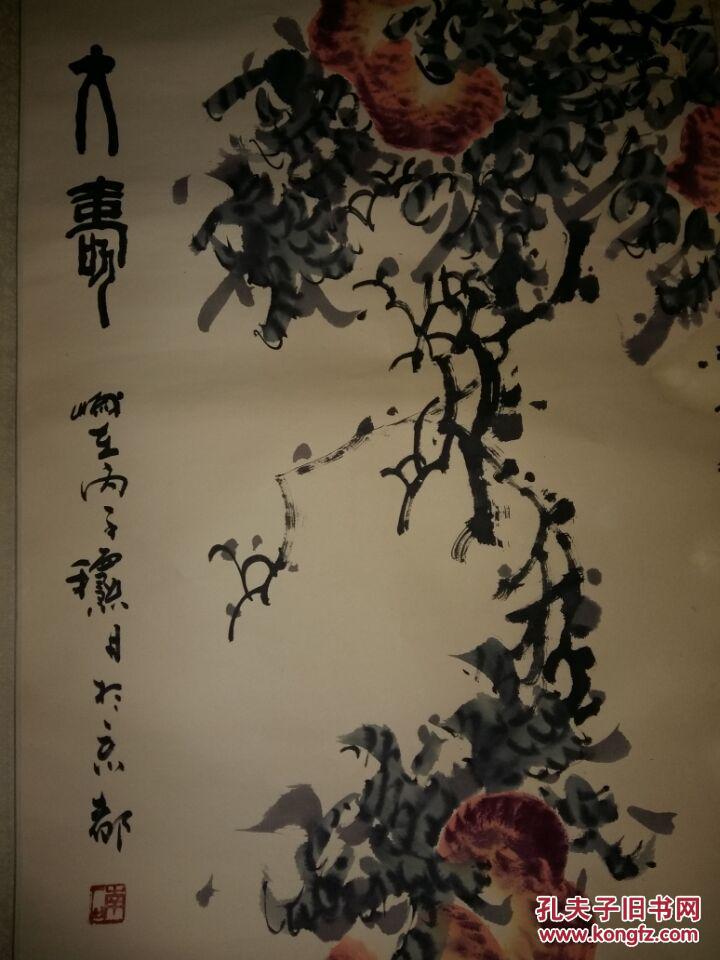 大壽
歲在丙子穐月於京都
孔夫子旧书网
www.kongfz.com